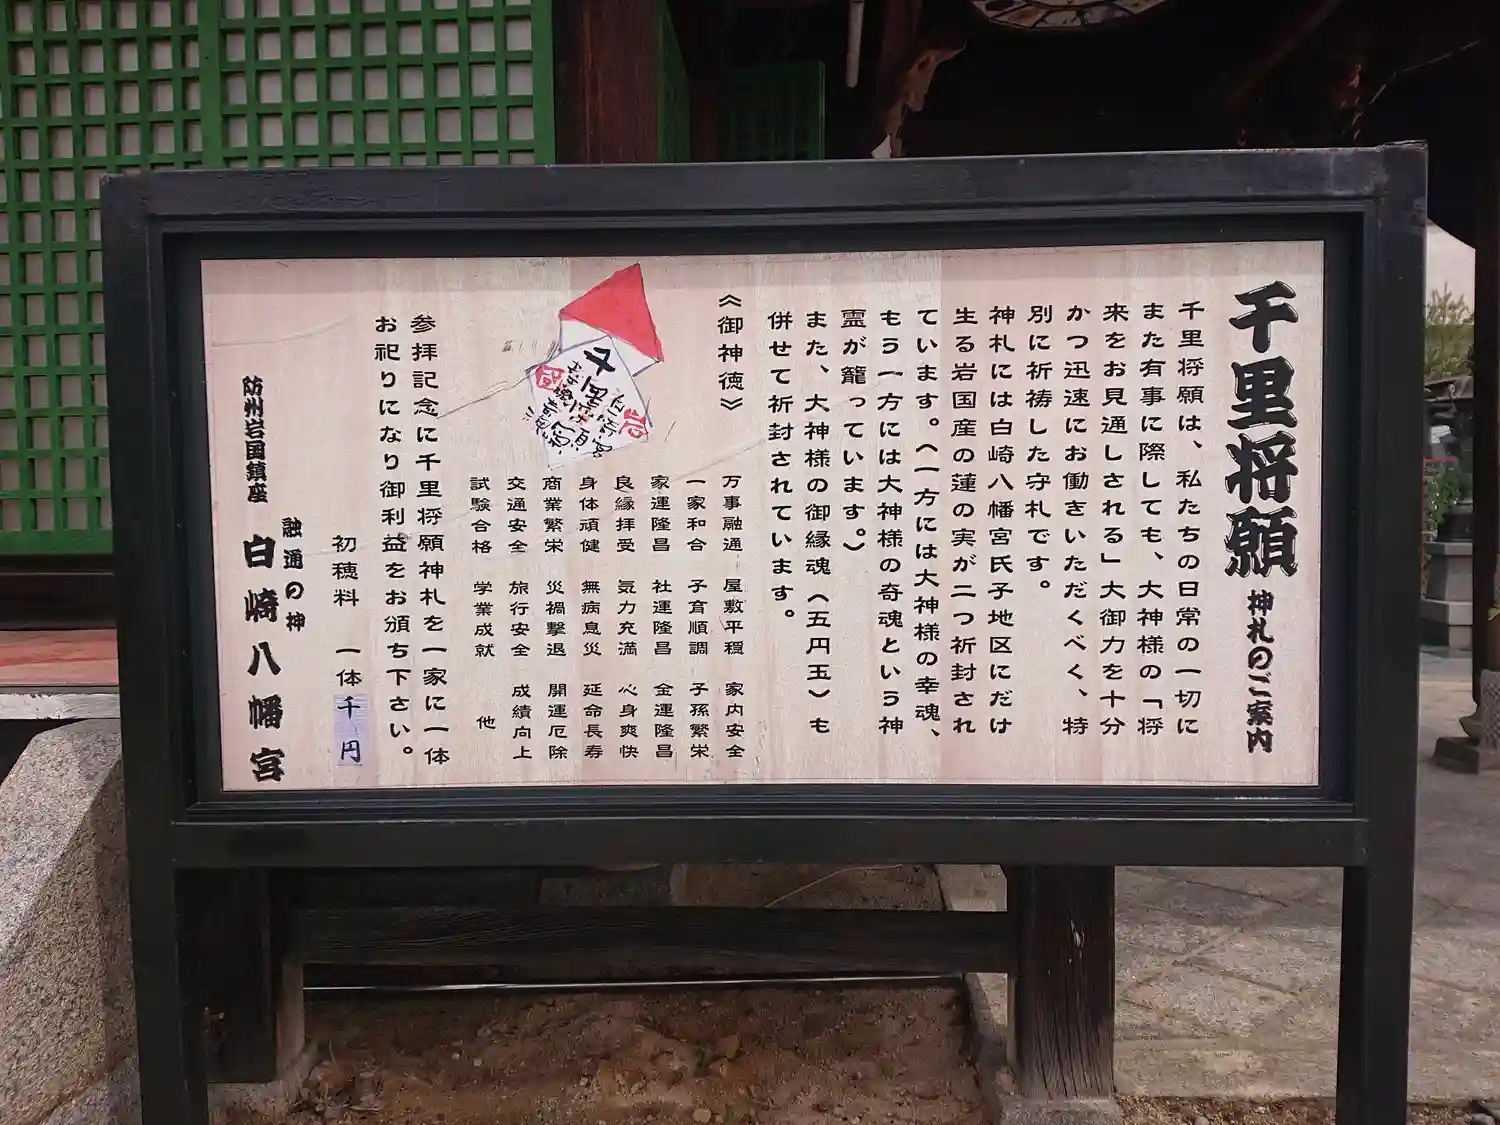 千里将願 神札のご案内
千里将願は、私たちの日常の一切に
また有事に際しても、大神様の「将
来をお見通しされる」大御力を十分
かつ迅速にお働きいただくべく、特
別に祈祷した守札です。
神札には白崎八幡宮氏子地区にだけ
生る岩国産の蓮の実が二つ祈封され
ています。(一方には大神様の幸魂、
もう一方には大神様の奇魂という神
霊が籠っています。)
また、大神様の御縁魂(五円玉)も
併せて祈封されています。
《御神徳》
万事融通 屋敷平穏 家内安全
一家和合 子育順調 子孫繁栄
家運隆昌 社運隆昌 金運隆昌
良縁拝受 気力充満 心身爽快
身体頑健 無病息災 延命長寿
商業繁栄 災禍撃退 開運厄除
交通安全 旅行安全 成績向上
試験合格 学業成就 他
参拝記念に千里将願神札を一家に一体
お祀りになり御利益をお頒ち下さい。
初穂料 一体千円
融通の神
防州岩国鎮座 白崎八幡宮